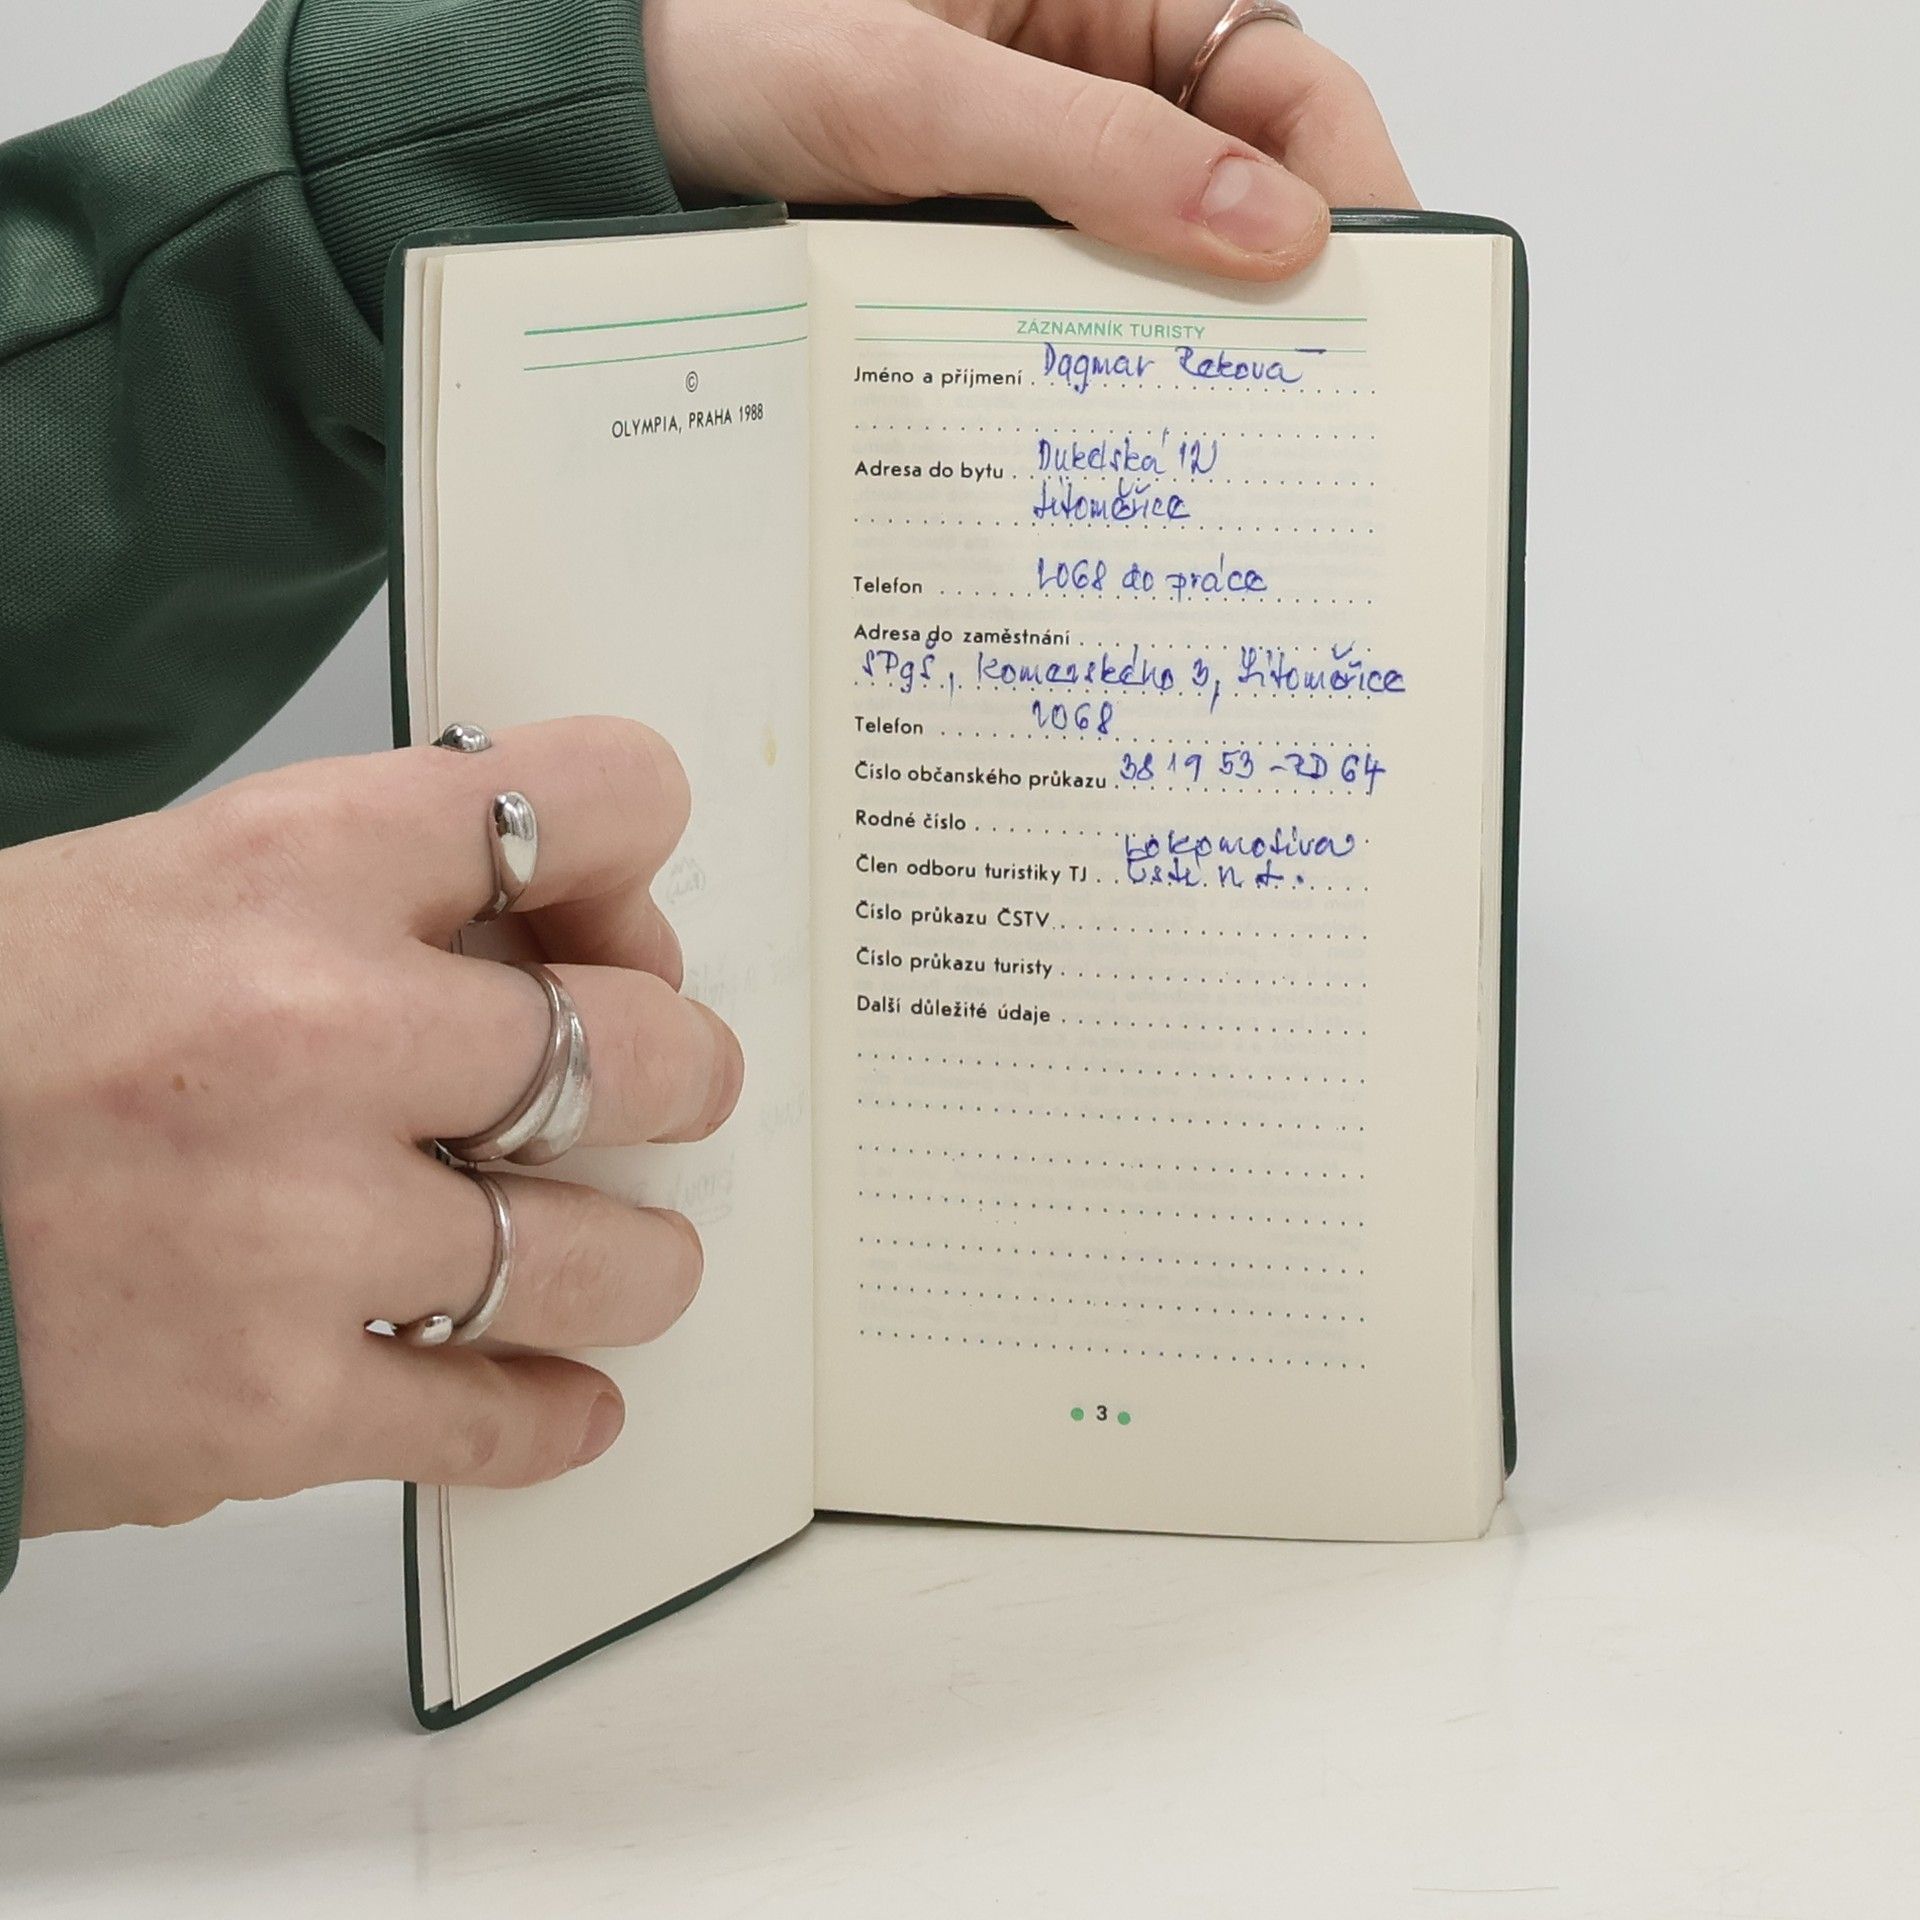 ©
OLYMPIA, PRAHA 1988
ZÁZNAMNÍK TURISTY
Jméno a příjmení Dagmar
Adresa do bytu Dukelská 12
Litoměřice
Telefon 2068 do práce
Adresa do zaměstnání
SPgŠ, Komenského 3, Litoměřice
Telefon 2068
Číslo občanského průkazu 38 19 53 - ZD 64
Rodné číslo
Lokomotiva
Člen odboru turistiky TJ Ústí n. L.
Číslo průkazu ČSTV
Číslo průkazu turisty
Další důležité údaje
3